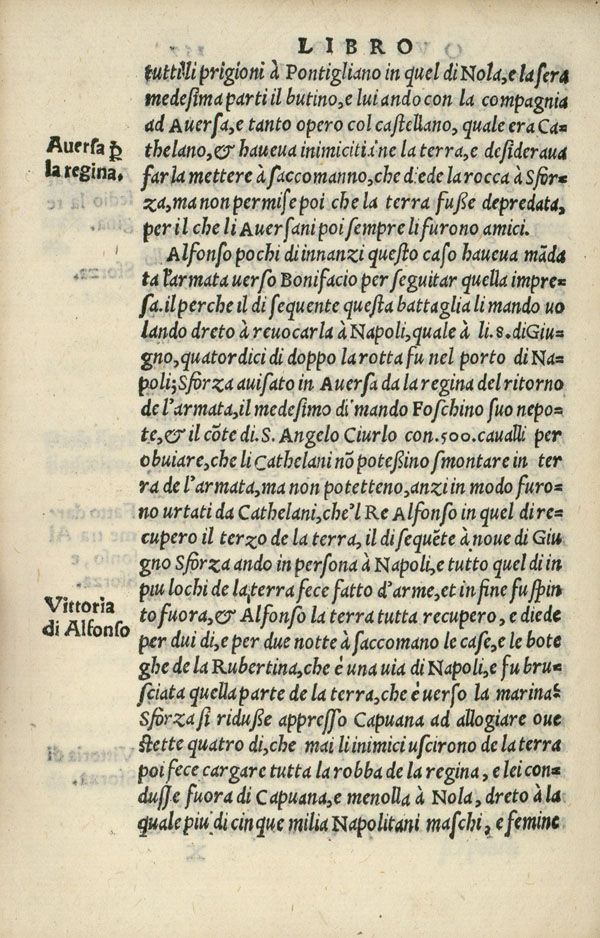 LIBRO
tutti li prigioni à Pontigliano in quel di Nola, e la sera
medesima parti il butino, e lui ando con la compagnia
ad Auersa, e tanto opero col castellano, quale era Ca-
Auersa p̱
la regina.
thelano, & haueua inimicitia ne la terra, e desideraua
farla mettere à saccomanno, che diede la rocca à Sfor-
za, ma non permise poi che la terra fuße depredata,
per il che li Auersani poi sempre li furono amici.
Alfonso pochi di innanzi questo caso haueua mãda
ta l'armata uerso Bonifacio per seguitar quella impre-
sa. il perche il di sequente questa battaglia li mando uo
lando dreto à reuocarla à Napoli, quale à li.8.di Giu-
gno, quatordici di doppo la rotta fu nel porto di Na-
poli; Sforza auisato in Auersa da la regina del ritorno
de l'armata, il medesimo di mando Foschino suo nepo-
te, & il cõte di.S. Angelo Ciurlo con.500.caualli per
obuiare, che li Cathelani nõ poteßino smontare in ter
ra de l'armata, ma non potetteno, anzi in modo furo-
no urtati da Cathelani, che'l Re Alfonso in quel di re-
cupero il terzo de la terra, il di sequẽte à noue di Giu
gno Sforza ando in persona à Napoli, e tutto quel di in
piu lochi de la terra fece fatto d'arme, et in fine fu spin
Vittoria
di Alfonso
to fuora, & Alfonso la terra tutta recupero, e diede
per dui di, e per due notte à saccomano le case, e le bote
ghe de la Rubertina, che è una uia di Napoli, e fu bru-
sciata quella parte de la terra, che è uerso la marina
Sforza si riduße appresso Capuana ad allogiare oue
stette quatro di, che mai li inimici uscirono de la terra
poi fece cargare tutta la robba de la regina, e lei con-
dusse fuora di Capuana, e menolla à Nola, dreto à la
quale piu di cinque milia Napolitani maschi, e femine